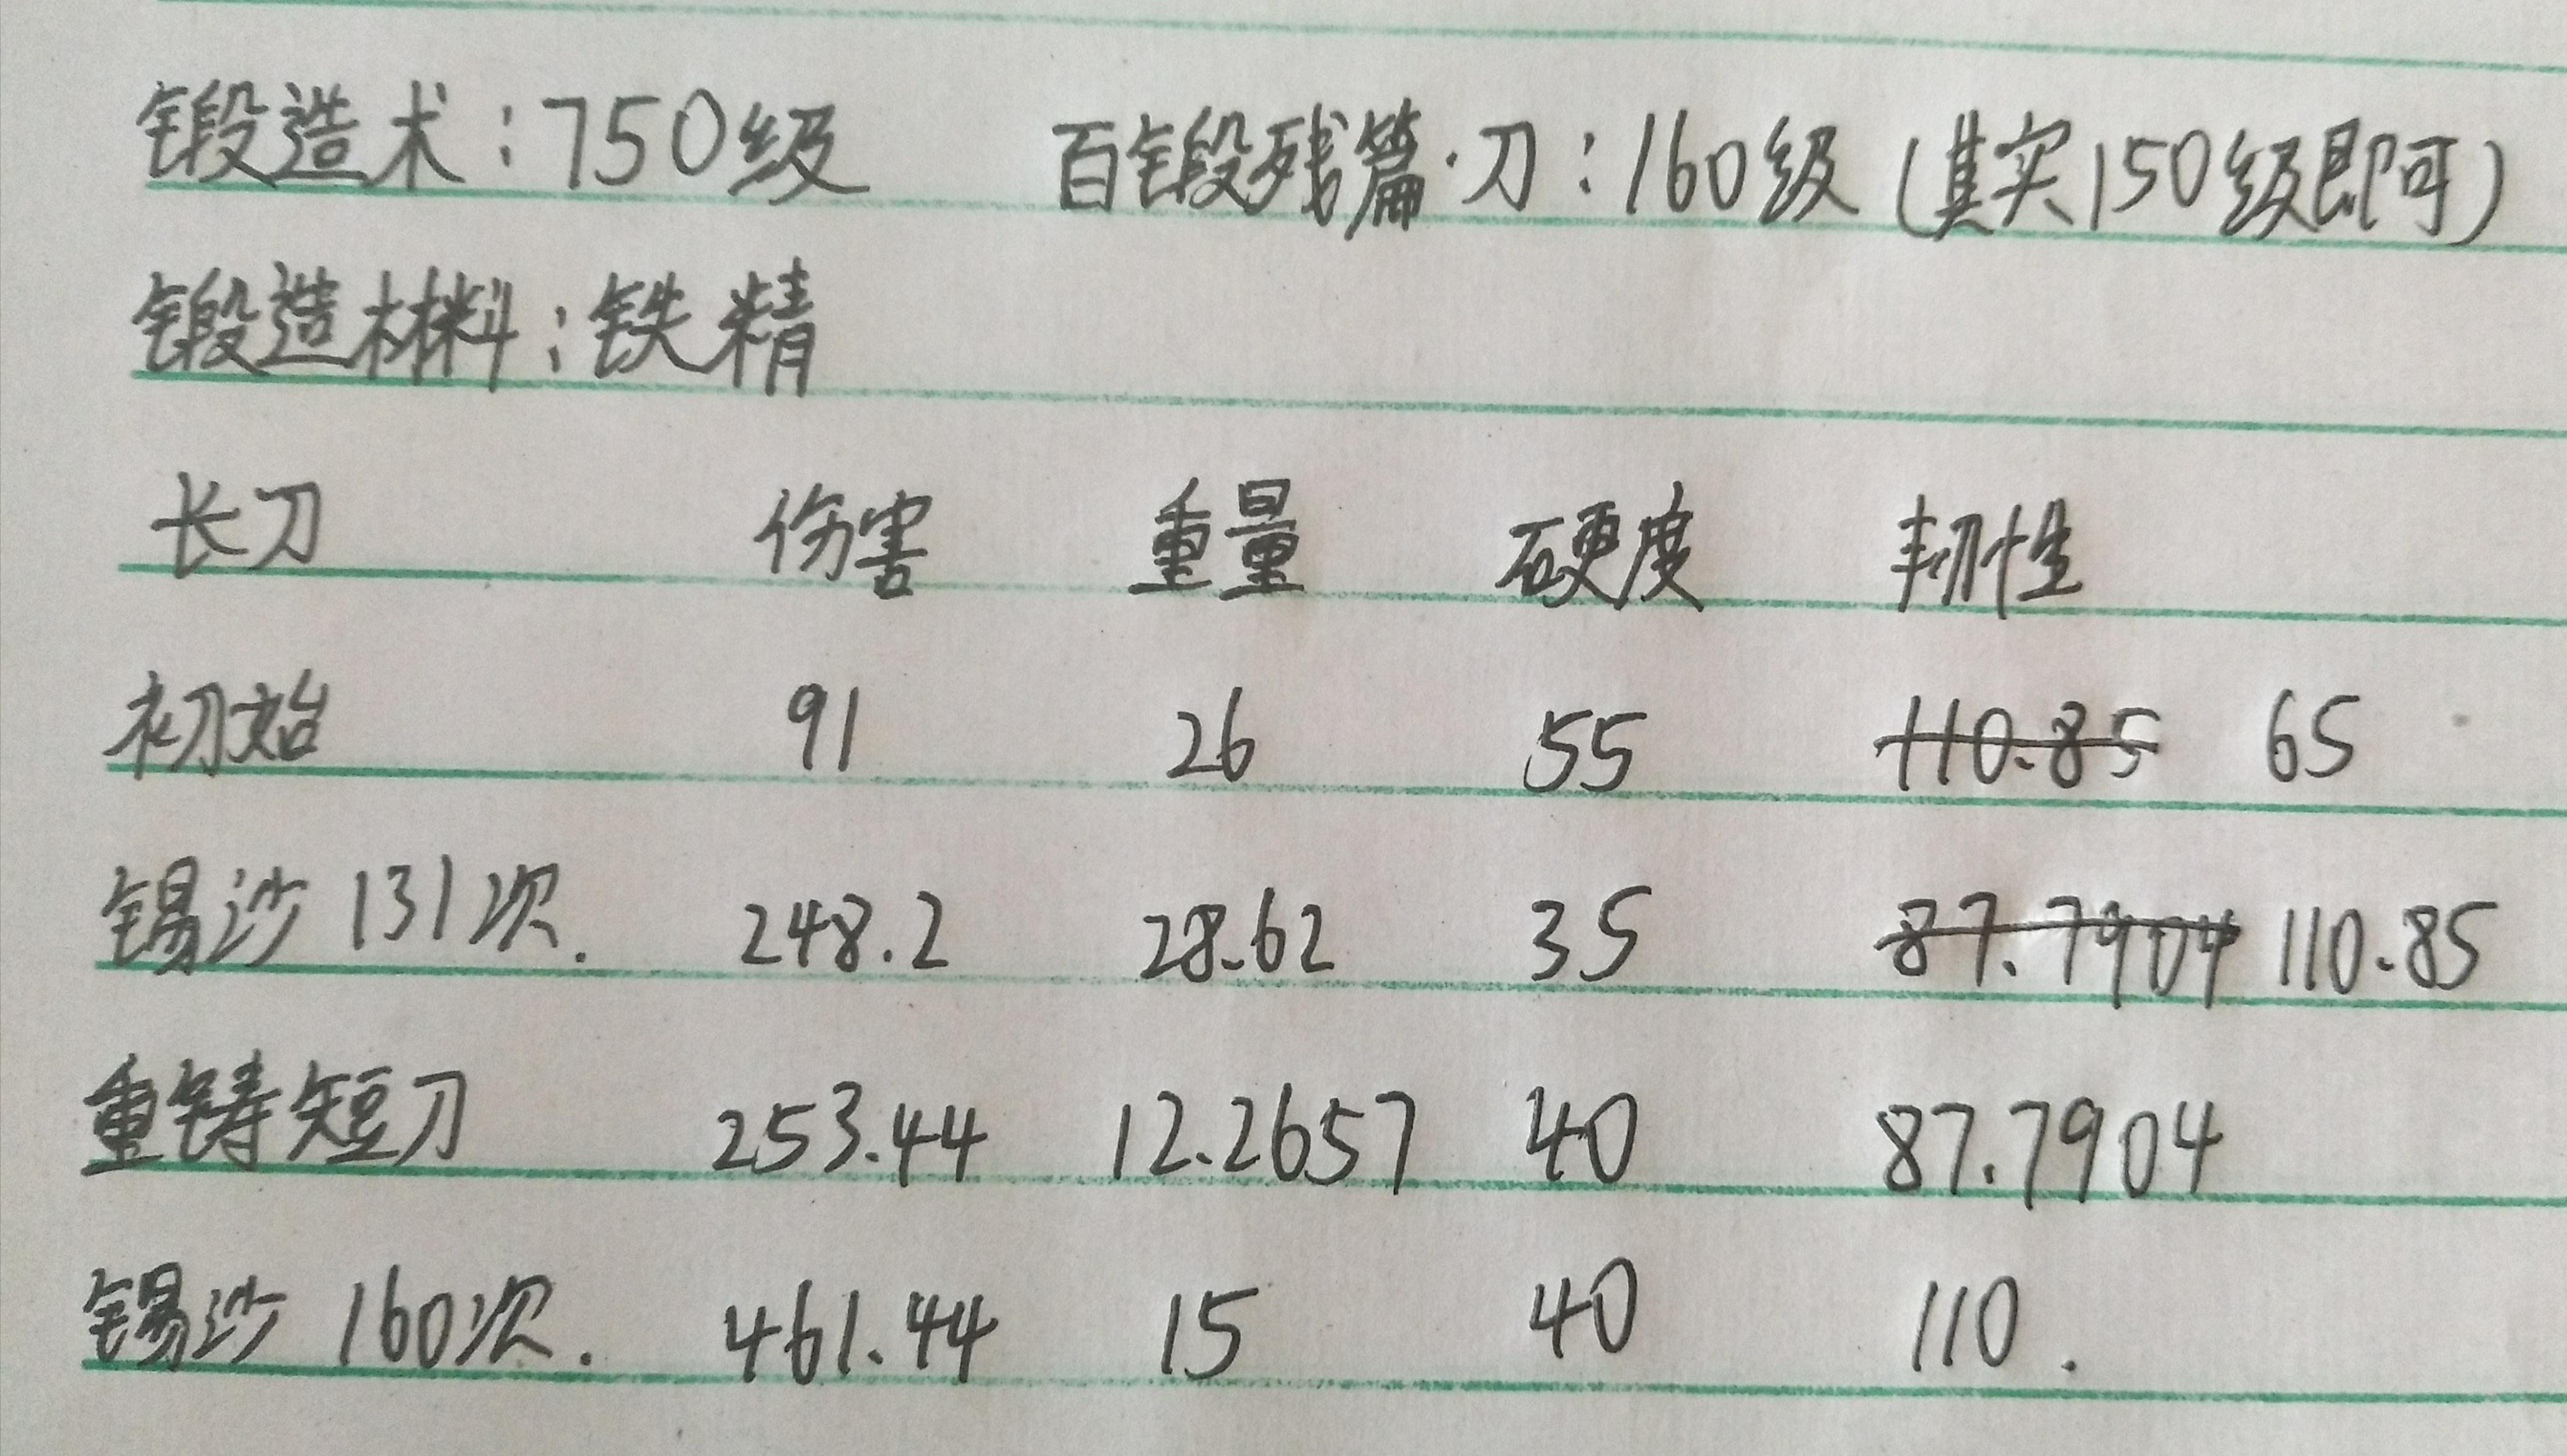 锻造术：750级 百锻残篇·刀：160级（其实150级即可）
锻造材料：铁精
长刀 伤害 重量 硬度 韧性
初始 91 26 55 110.85 65
锡沙131次. 248.2 28.62 35 87.7904 110.85
重铸短刀 253.44 12.2657 40 87.7904
锡沙 160次. 461.44 15 40 110.